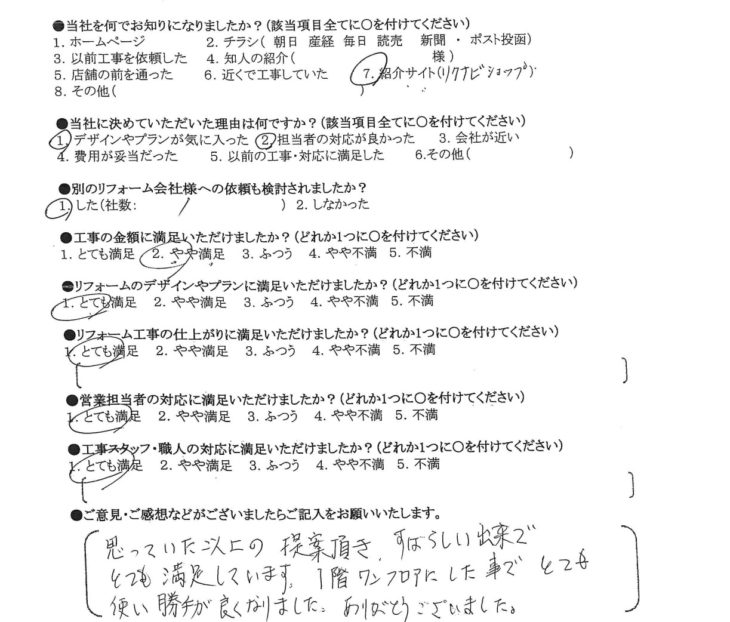 ●当社を何でお知りになりましたか?(該当項目全てに〇を付けてください)
1. ホームページ 2. チラシ( 朝日 産経 毎日 読売 新聞 ・ ポスト投函)
3. 以前工事を依頼した 4. 知人の紹介( 様)
5. 店舗の前を通った 6. 近くで工事していた 7. 紹介サイト(リクナビショップ)
8. その他( )
●当社に決めていただいた理由は何ですか?(該当項目全てに〇を付けてください)
1. デザインやプランが気に入った 2. 担当者の対応が良かった 3. 会社が近い
4. 費用が妥当だった 5. 以前の工事・対応に満足した 6.その他( )
●別のリフォーム会社様への依頼も検討されましたか?
1. した(社数: 1 ) 2. しなかった
●工事の金額に満足いただけましたか?(どれか1つに〇を付けてください)
1. とても満足 2. やや満足 3. ふつう 4. やや不満 5. 不満
●リフォームのデザインやプランに満足いただけましたか?(どれか1つに〇を付けてください)
1. とても満足 2. やや満足 3. ふつう 4. やや不満 5. 不満
●リフォーム工事の仕上がりに満足いただけましたか?(どれか1つに〇を付けてください)
1. とても満足 2. やや満足 3. ふつう 4. やや不満 5. 不満
●営業担当者の対応に満足いただけましたか?(どれか1つに〇を付けてください)
1. とても満足 2. やや満足 3. ふつう 4. やや不満 5. 不満
●工事スタッフ・職人の対応に満足いただけましたか?(どれか1つに〇を付けてください)
1. とても満足 2. やや満足 3. ふつう 4. やや不満 5. 不満
●ご意見・ご感想などがございましたらご記入をお願いいたします。
思っていた以上の 提案頂き、すばらしい出来で
とても満足しています。1階ワンフロアにした事で とても
使い勝手が良くなりました。ありがとうございました。